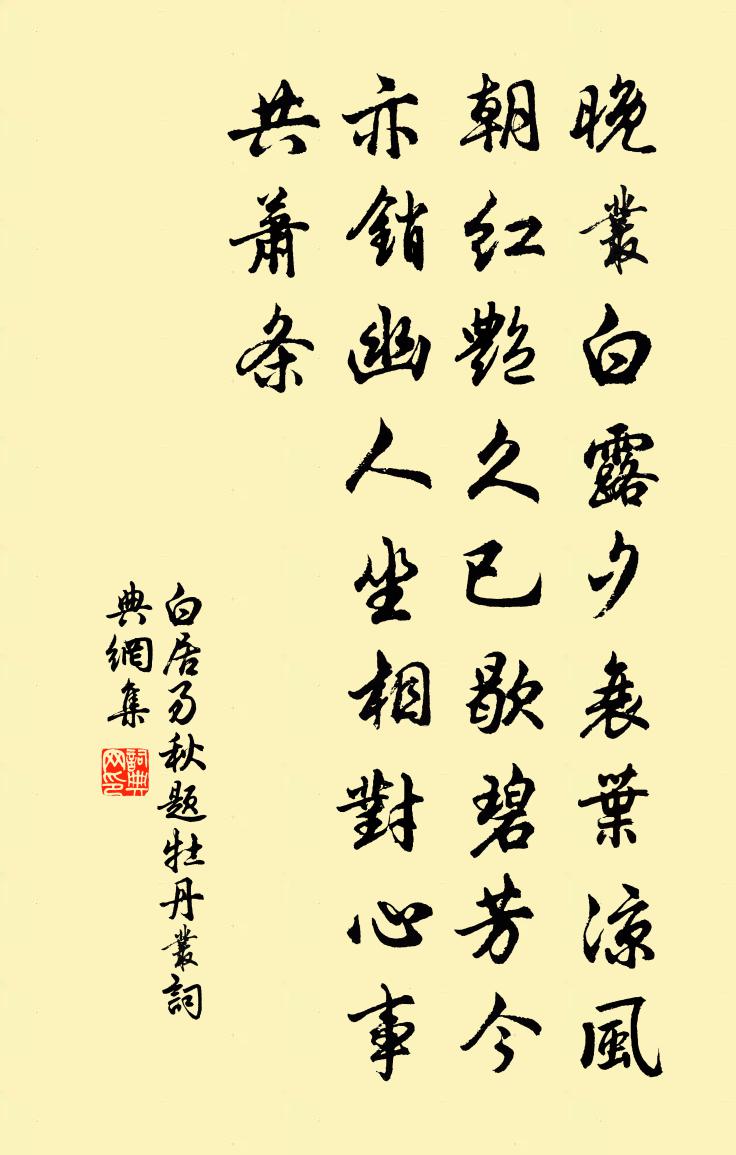 晚叢白露夕衰葉涼風
朝紅艷久已歇碧芳今
亦銷幽人坐相對心事
共蕭条
白居易秋题牡丹叢詞
典網集
詞典
网印